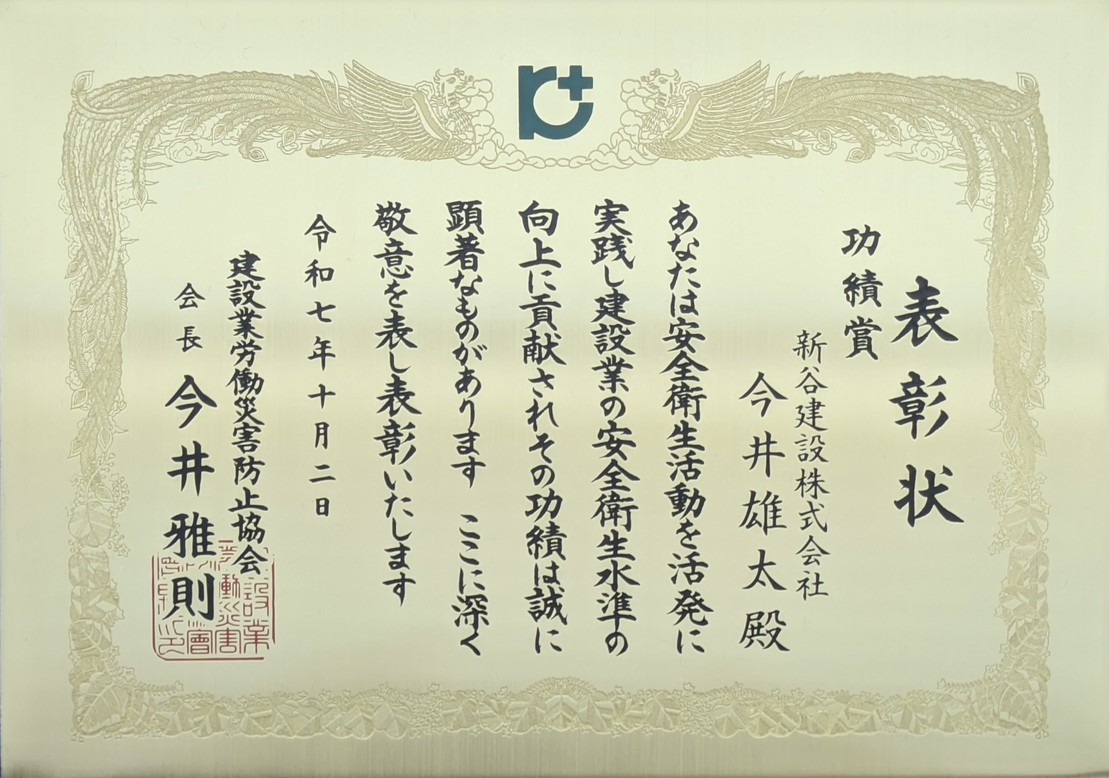 表彰状
功績賞
新谷建設株式会社
今井雄太殿
あなたは安全衛生活動を活発に
実践し建設業の安全衛生水準の
向上に貢献されその功績は誠に
顕著なものがあります　ここに深く
敬意を表し表彰いたします
令和七年十月二日
建設業労働災害防止協会
会長　今井雅則